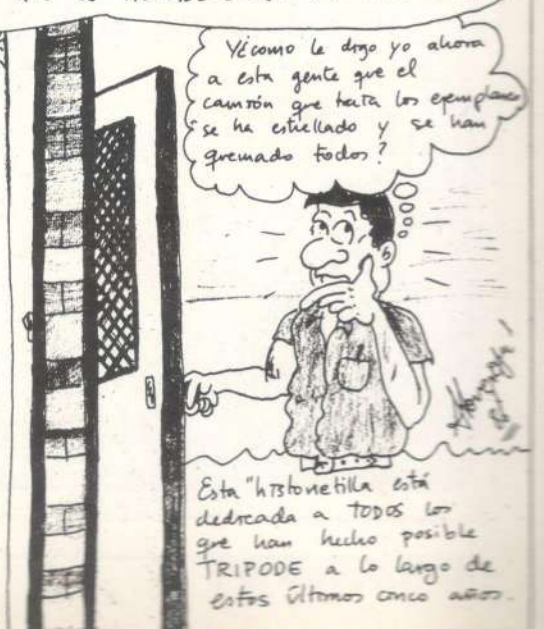 YÉcomo le digo yo ahora
a esta gente que el
camión que traía los ejemplares
se ha estrellado y se han
quemado todos?
Esta "historietilla está
dedicada a TODOS los
que han hecho posible
TRIPODE a lo largo de
estos últimos cinco años.